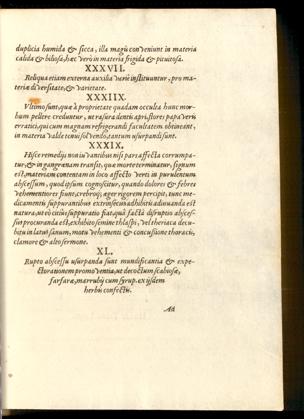 duplicia humida & sicca, illa magis conveniunt in materia
calida & biliosa, hæc verò in materia frigida & pituitosa.
XXXVII.
Reliqua etiam externa auxilia variè instituuntur, pro ma-
teriæ diversitate, & varietate.
XXXIIX.
Ultimo sunt, quæ à proprietate quadam occulta hunc mor-
bum pellere creduntur, ut rasura dentis apri, flores papaveris
erratici, qui cum magnam refrigerandi facultatem obtineant,
in materia valde tenui solvendo, tantum usurpandi sunt.
XXXIX.
Hisce remediis non iuvantibus nisi pars affecta corrumpa-
tur, & in gangrænam transit, quæ morte terminatur, signum
est, materiam contentam in loco affecto verti in purulentum
abscessum, quod ipsum cognoscitur, quando dolores & febres
vehementiores fiunt, crebroq; æger rigorem percipit, tunc me-
dicamentis suppurantibus extrinsecus adhibitis adiuvanda est
natura, ut eò citius suppuratio fiat, quâ factâ disruptio abscessus
procuranda est, exhibito semine thlaspi, vel horhiaca decu-
bitu in latus sanum, motu vehementi & concussione thoracis,
clamore & alto sermone.
XL.
Rupto abscessu usurpanda sunt mundificantia & expe-
ctorationem promoventia, ut decoctum scabiosæ,
farfaræ, marrubij cum syrup. ex ijsdem
herbis confectis.
Ad